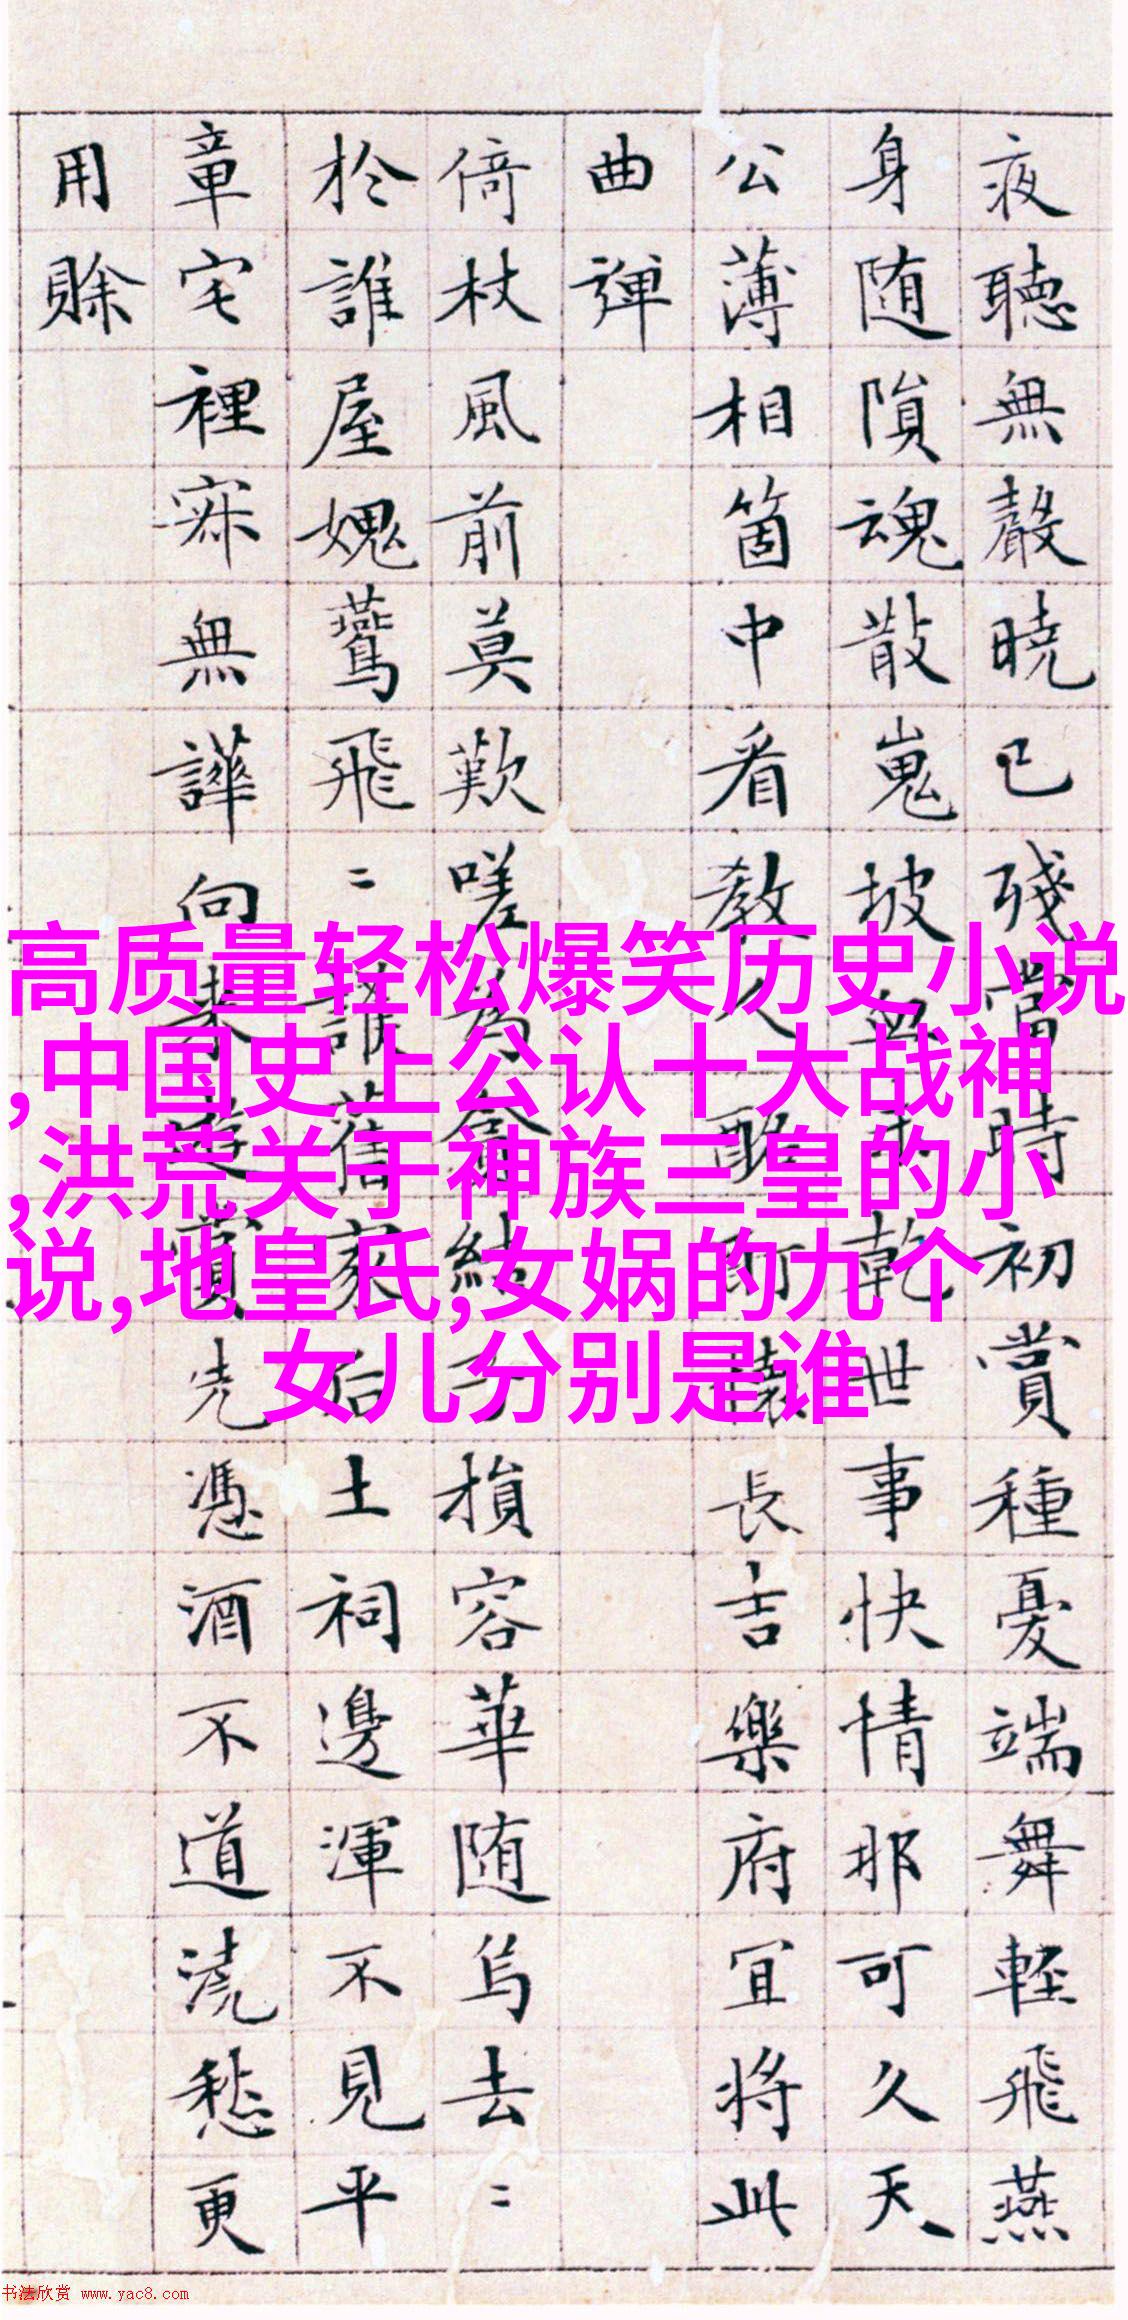 夜聽無聲曉已殘當時初賞種憂端舞輕飛燕
身隨隕魂散嵬坡血未乾世事快情那可久天
公薄相箇中看教人酩酊懷長吉樂府宜將此
曲彈
倚杖風前莫歎嗟為結子損容華隨烏去〻
於誰屋媿鷰飛〻誰舊家后土祠邊渾不見平
章宅裡寂無譁向來遊賞先憑酒不道澆愁更
用賒
高质量轻松爆笑历史小说
,中国史上公认十大战神
,洪荒关于神族三皇的小
说,地皇氏,女娲的九个
女儿分别是谁
书法欣赏 www.yac8.com